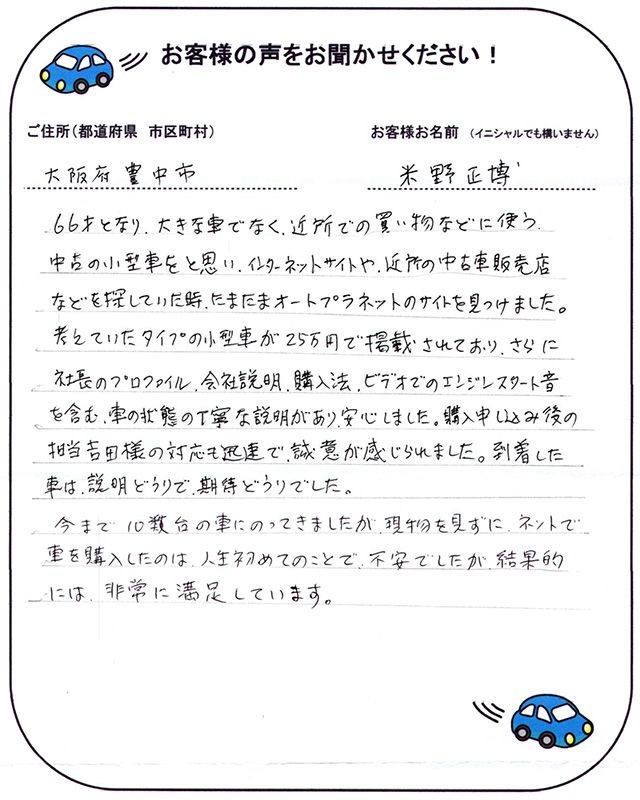 お客様の声をお聞かせください！
ご住所（都道府県　市区町村）
お客様お名前　（イニシャルでも構いません）
大阪府豊中市
米野正博
66才となり、大きな車でなく、近所での買い物などに使う、
中古の小型車をと思い、インターネットサイトや、近所の中古車販売店
などを探していた時、たまたまオートプラネットのサイトを見つけました。
考えていたタイプの小型車が25万円で掲載されており、さらに
社長のプロファイル、会社説明、購入法、ビデオでのエンジンスタート音
を含む、車の状態の丁寧な説明があり、安心しました。購入申し込み後の
担当吉田様の対応も迅速で、誠意が感じられました。到着した
車は、説明どうりで、期待どうりでした。
今まで10数台の車にのってきましたが、現物を見ずに、ネットで
車を購入したのは、人生初めてのことで、不安でしたが、結果的
には、非常に満足しています。